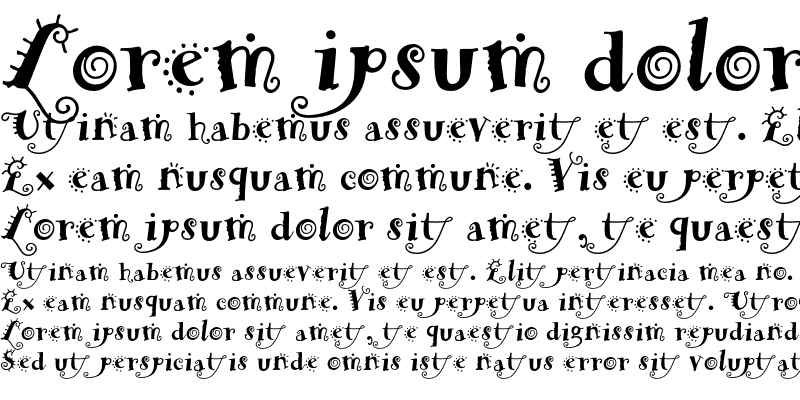 Lorem ipsum dolor
Utinam habemus assueverit et est. El
Ex eam nusquam commune. Vis eu perpet
Lorem ipsum dolor sit amet, te quaest
Utinam habemus assueverit et est. Elit pertinacia mea no.
Ex eam nusquam commune. Vis eu perpetua interesset. Utro
Lorem ipsum dolor sit amet, te quaestio dignissim repudiand
Sed ut perspiciatis unde omnis iste natus error sit voluptat